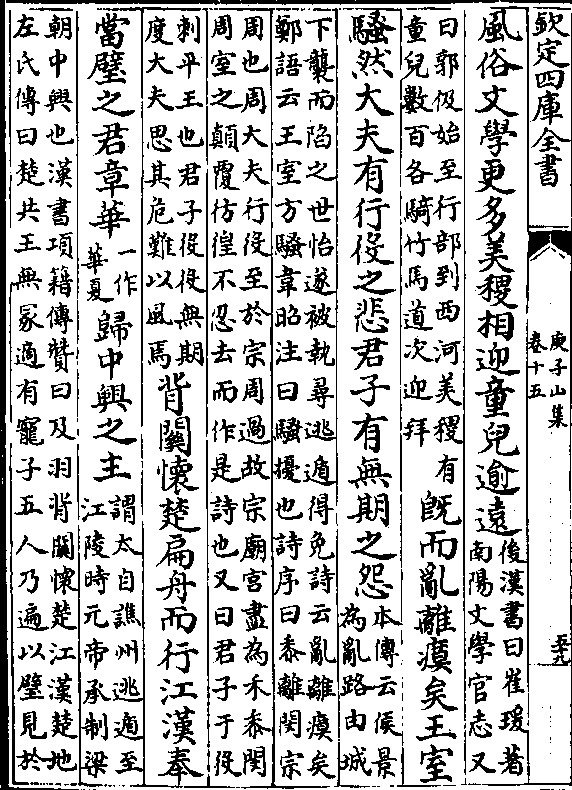 欽定四庫全書
庾子山集
卷十五
五九
風俗文學更多美稷相迎童兒逾遠後漢書曰崔瑗著
南陽文學官志又
曰郭伋始至行部到西河美稷有
童兒數百各騎竹馬道次迎拜
既而亂離瘼矣王室
騷然大夫有行役之悲君子有無期之怨本傳云侯景
為亂路由城
下襲而陷之世怡遂被執尋逃遁得免詩云亂離瘼矣
鄭語云王室方騷韋昭注曰騷擾也詩序曰黍離閔宗
周也周大夫行役至於宗周過故宗廟宮盡為禾黍閔
周室之顛覆彷徨不忍去而作是詩也又曰君子于役
刺平王也君子役役無期
度大夫思其危難以風焉
背關懷楚扁舟而行江漢奉
當璧之君章華一作
華夏
歸中興之主謂太自譙州逃遁至
江陵時元帝承制梁
朝中興也漢書項籍傳贊曰及羽背關懷楚江漢楚地
左氏傳曰楚共王無冢適有寵子五人乃遍以璧見於